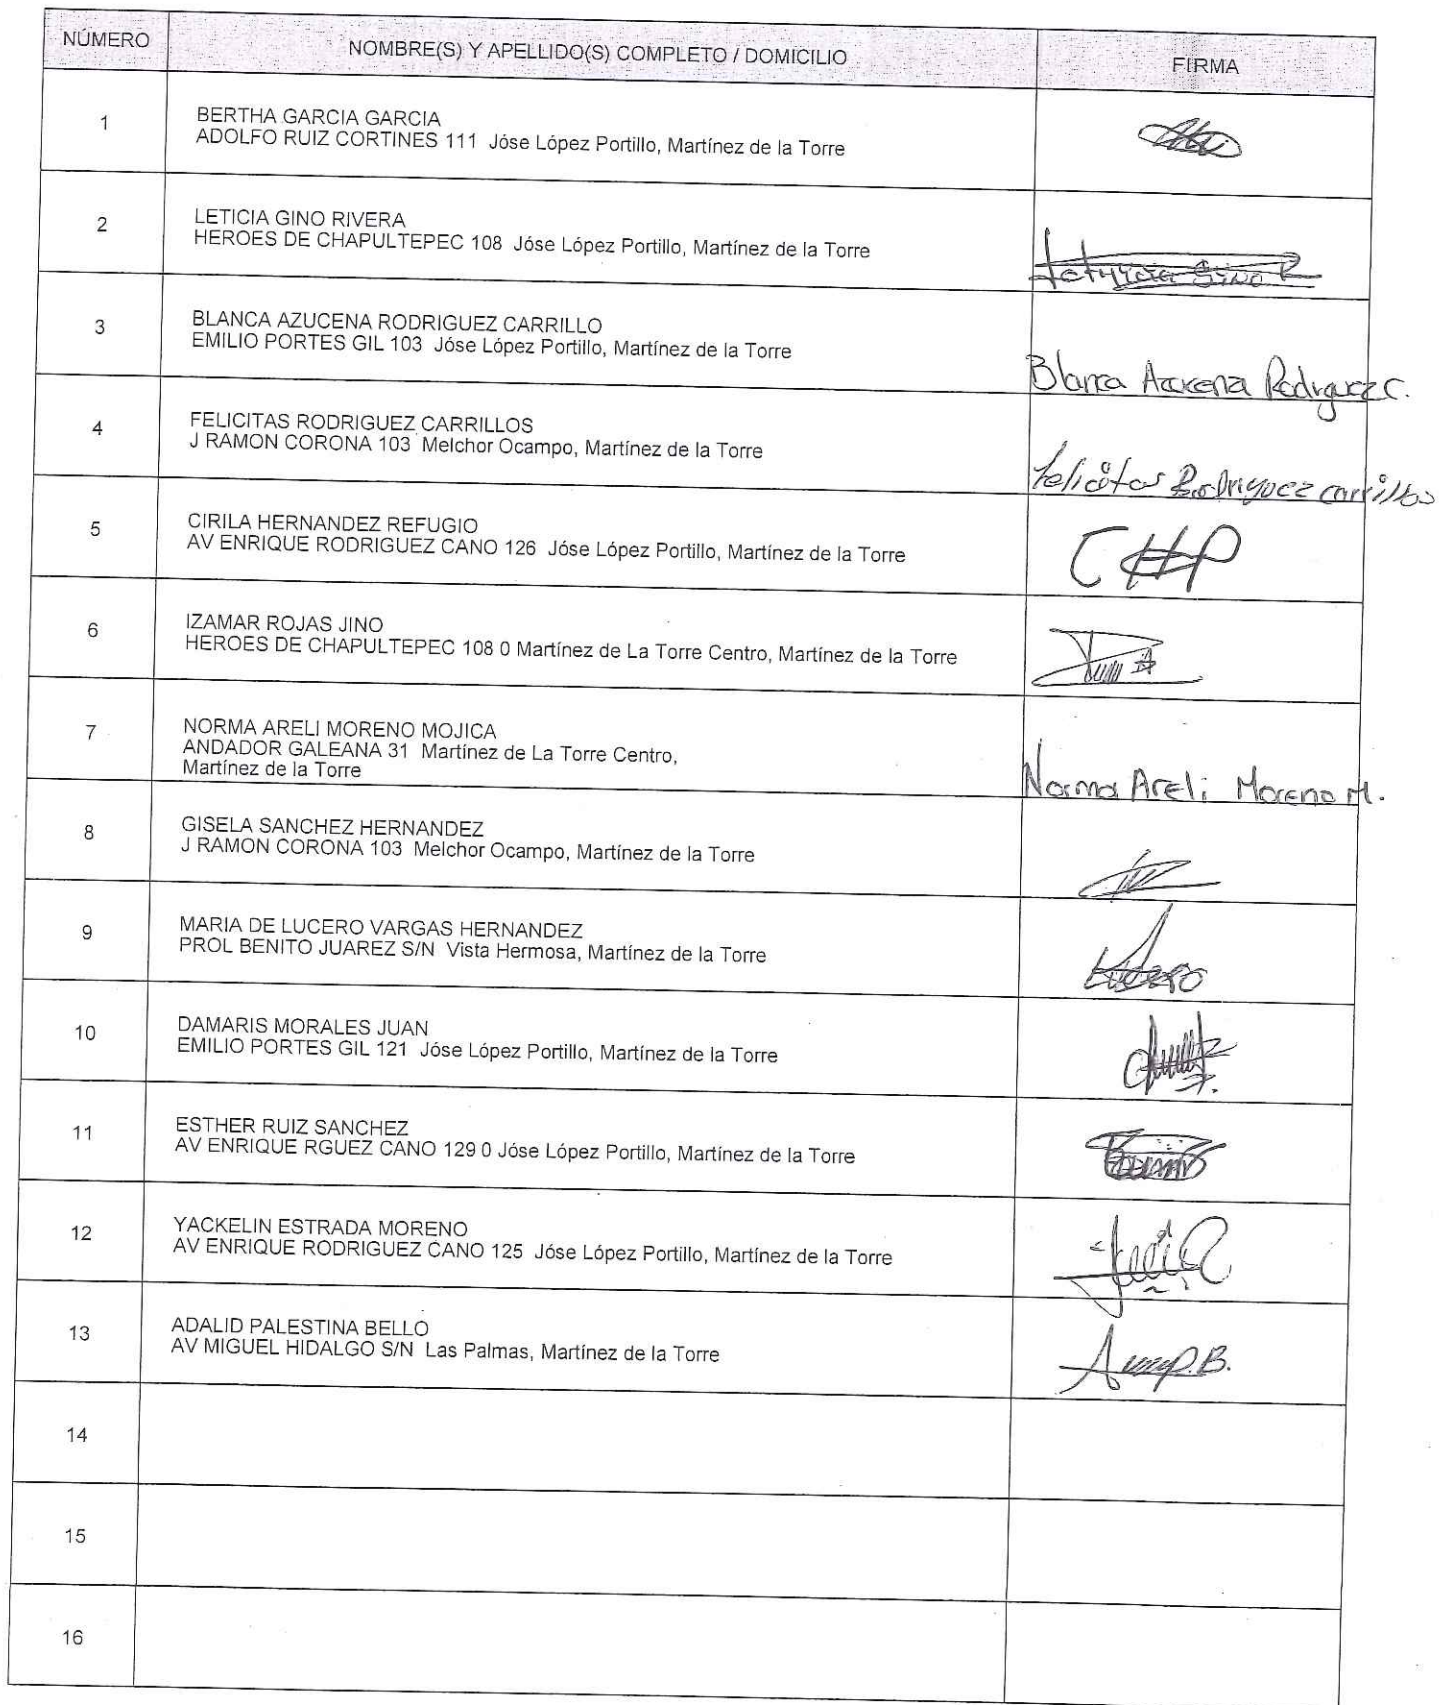 NÚMERO NOMBRE(S) Y APELLIDO(S) COMPLETO / DOMICILIO FIRMA
1 BERTHA GARCIA GARCIA
ADOLFO RUIZ CORTINES 111 Jóse López Portillo, Martínez de la Torre
2 LETICIA GINO RIVERA
HEROES DE CHAPULTEPEC 108 Jóse López Portillo, Martínez de la Torre
Gino R
3 BLANCA AZUCENA RODRIGUEZ CARRILLO
EMILIO PORTES GIL 103 Jóse López Portillo, Martínez de la Torre
Blanca Azucena Rodriguez C.
4 FELICITAS RODRIGUEZ CARRILLOS
J RAMON CORONA 103 Melchor Ocampo, Martínez de la Torre
Felicitas Rodriguez carrillos
5 CIRILA HERNANDEZ REFUGIO
AV ENRIQUE RODRIGUEZ CANO 126 Jóse López Portillo, Martínez de la Torre
6 IZAMAR ROJAS JINO
HEROES DE CHAPULTEPEC 108 0 Martínez de La Torre Centro, Martínez de la Torre
7 NORMA ARELI MORENO MOJICA
ANDADOR GALEANA 31 Martínez de La Torre Centro,
Martínez de la Torre
Norma Areli Moreno M.
8 GISELA SANCHEZ HERNANDEZ
J RAMON CORONA 103 Melchor Ocampo, Martínez de la Torre
9 MARIA DE LUCERO VARGAS HERNANDEZ
PROL BENITO JUAREZ S/N Vista Hermosa, Martínez de la Torre
10 DAMARIS MORALES JUAN
EMILIO PORTES GIL 121 Jóse López Portillo, Martínez de la Torre
11 ESTHER RUIZ SANCHEZ
AV ENRIQUE RGUEZ CANO 129 0 Jóse López Portillo, Martínez de la Torre
12 YACKELIN ESTRADA MORENO
AV ENRIQUE RODRIGUEZ CANO 125 Jóse López Portillo, Martínez de la Torre
13 ADALID PALESTINA BELLO
AV MIGUEL HIDALGO S/N Las Palmas, Martínez de la Torre
14
15
16